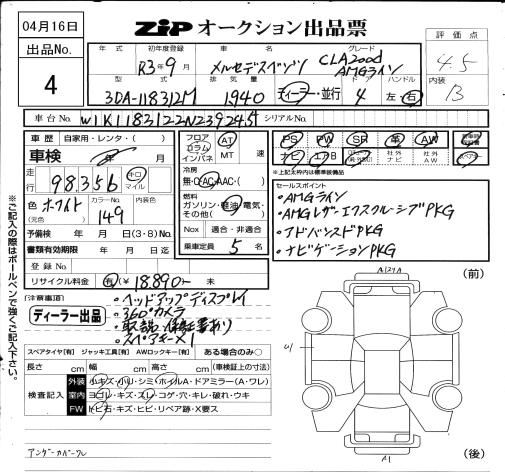 04月16日
ZiP オークション出品票
評価点
4.5
出品No.
4
年式 初年度登録 車名 グレード
R3年9月 メルセデスベンツ CLA200d AMGライン
内装
B
型式 排気量 ドア ハンドル
3DA-118312M 1,940 ディーラー・並行 4 左・右
車台No. W1K1183122N239245 シリアルNo.
車歴 自家用・レンタ( )
車検 年 月
走行 98,356 キロ マイル
色 ホワイト カラーNo. 149
(元色)
予備検 年 月 日(3・8)No.
書類有効期限 年 月 日迄
登録No.
リサイクル料金 有(¥18,890-) 未
フロア コラム インパネ AT MT 速
冷房
無・C・AC・AAC・( )
燃料
ガソリン・軽油・電気・その他( )
Nox 適合・非適合
乗車定員 5 名
PS PW SR 革 AW
ナビ エアB 社外ナビ 社外AW
*上記太枠内は標準装備品
セールスポイント
・AMGライン
・AMGレザーエクスクルーシブPKG
・アドバンスドPKG
・ナビゲーションPKG
注意事項
ディーラー出品
・ヘッドアップディスプレイ
・360°カメラ
・取説・保証書あり
・スペアキー×1
スペアタイヤ[有] ジャッキ工具[有] AWロックキー[有] ある場合のみ○
長さ cm 幅 cm 高さ cm (車検証上の寸法)
検査記入
外装 小キズ・小凹・シミ・ホイルA・ドアミラー(A・ワレ)
室内 ヨゴレ・キズ・スレ・コゲ・穴・キレ・破れ・ウキ
FW トビ石・キズ・ヒビ・リペア跡・X要ス
アンダーカバーワレ
(前)
(後)
A1
※ご記入の際はボールペンで強くご記入下さい。